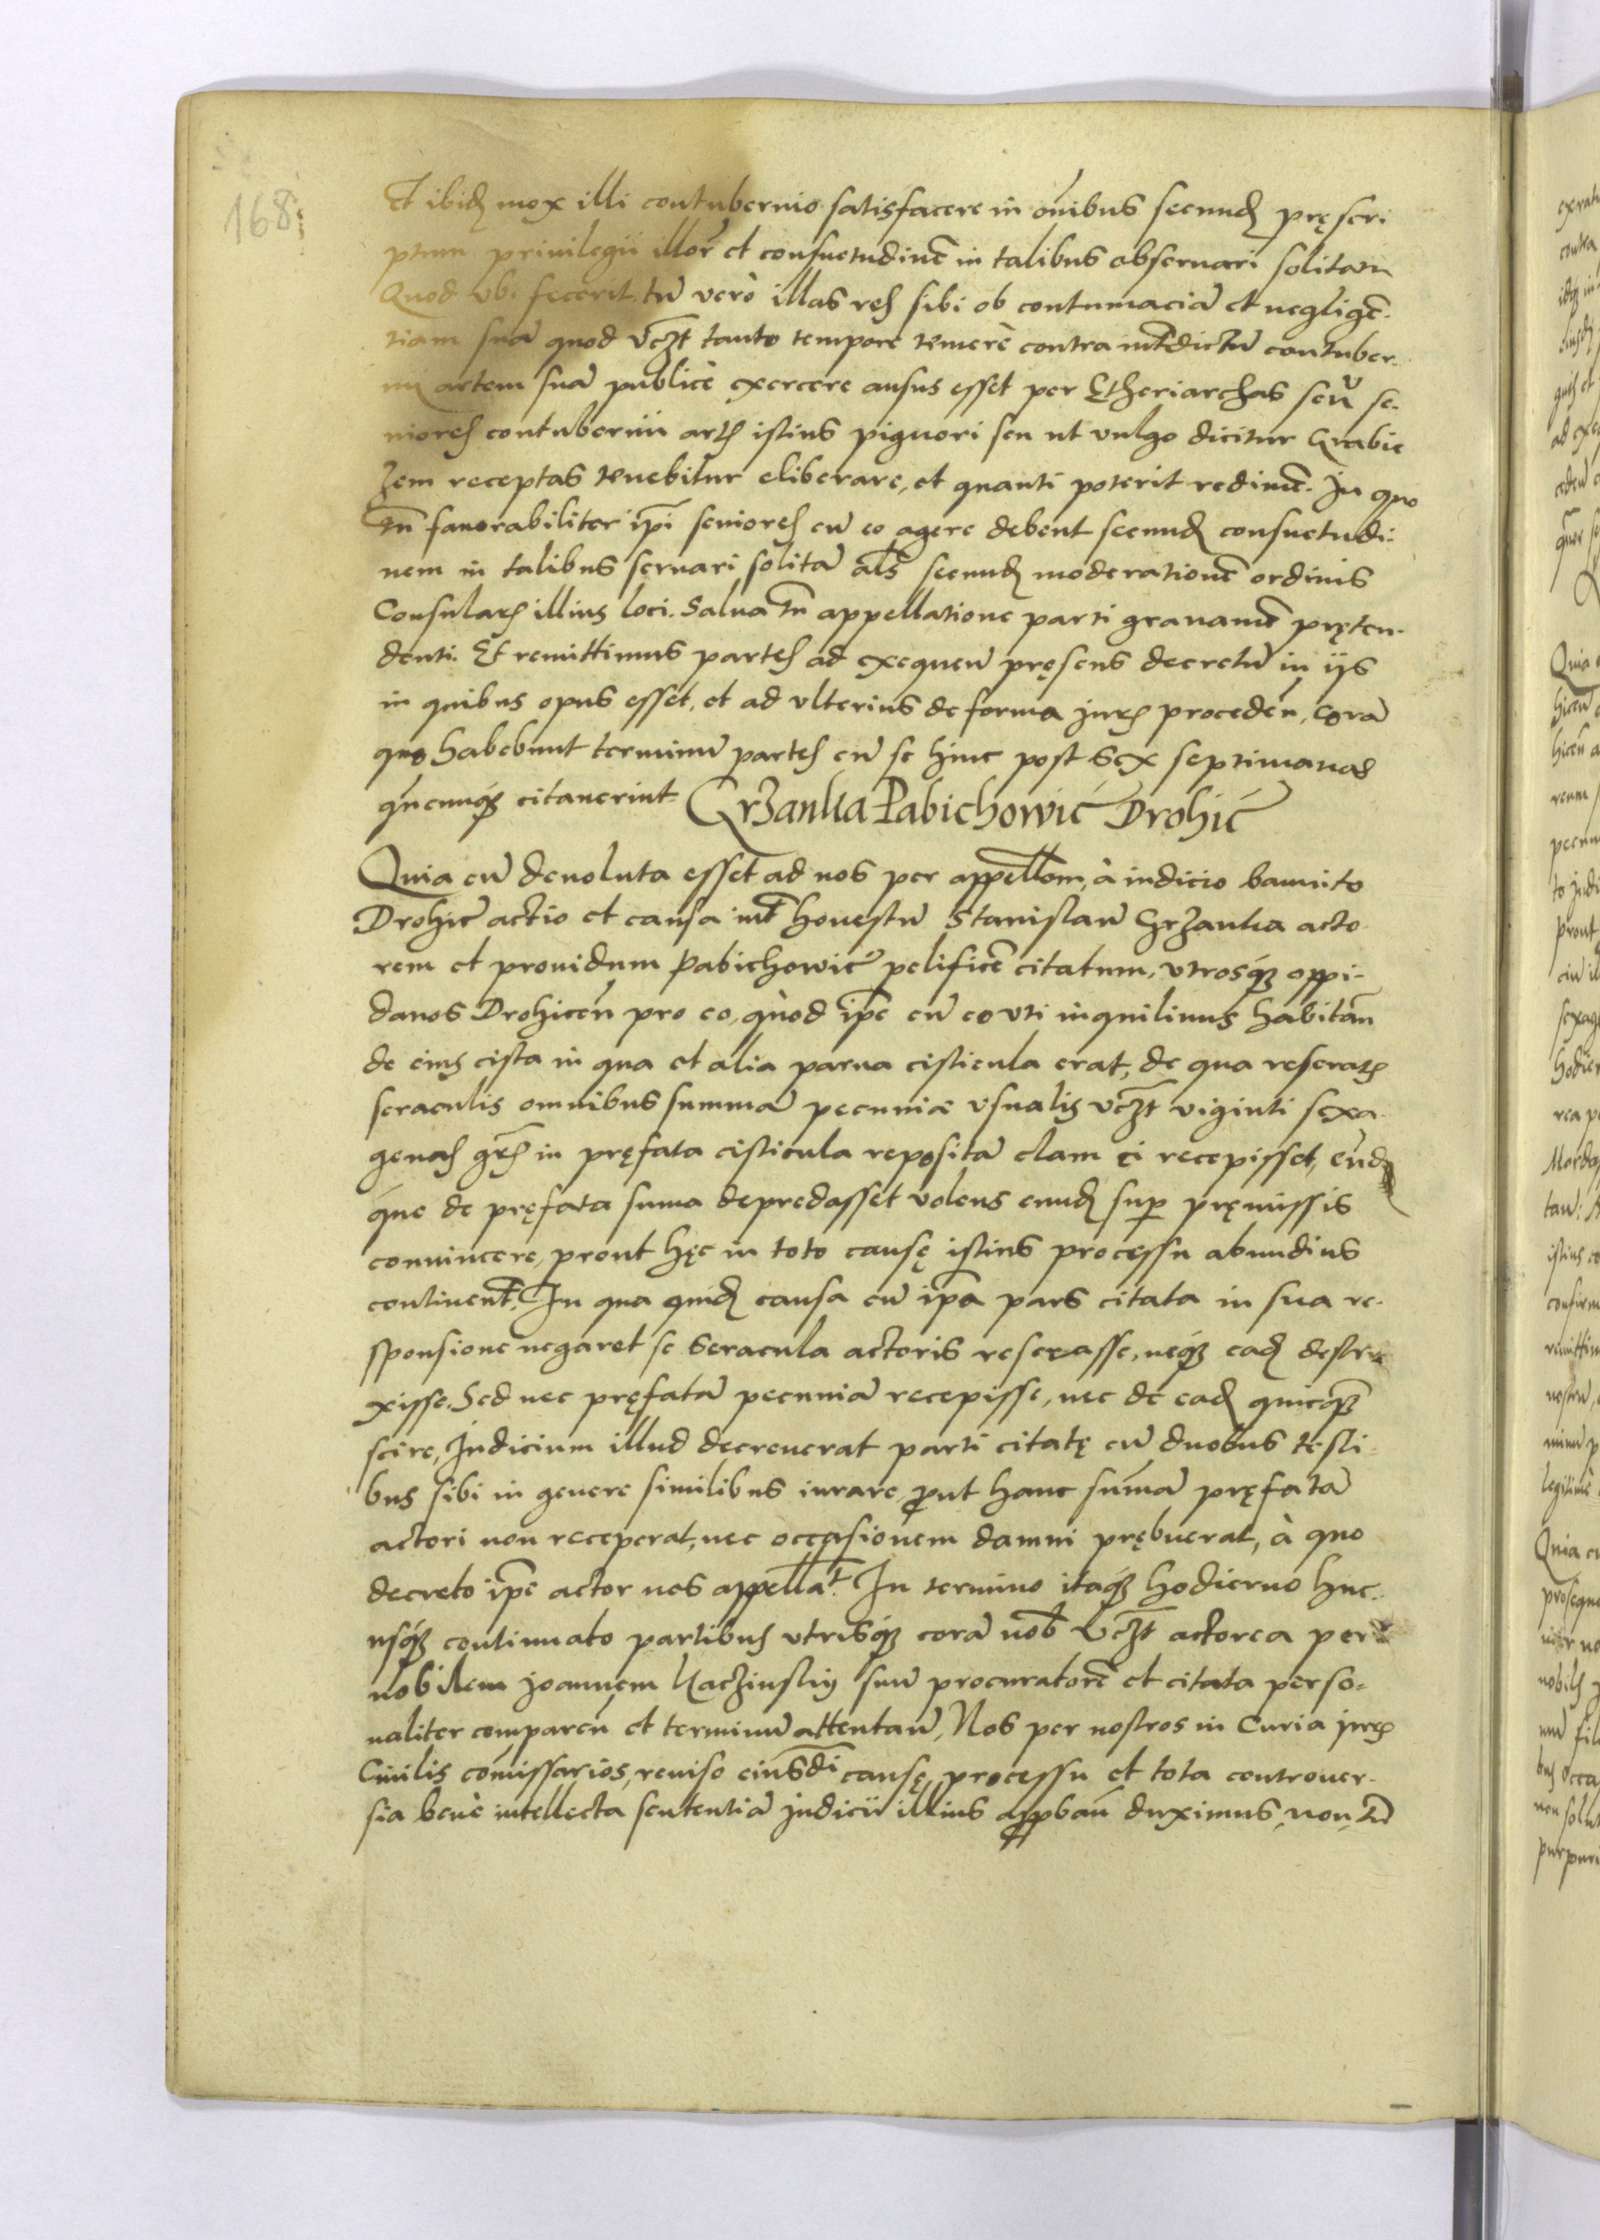 168
Et ibidẽ mox illi contubernio satisfacere in oĩbus secundũ pręscri
ptum privilegii illorũ et consuetudinẽ in talibus obseruari solitam
Quod ubi fecerit, tũ verò illas res sibi ob contumaciã et negligẽ-
tiam suã quod vczt tanto tempore temerè contra interdictũ contuber-
nii artem suã publicè exercere ausus esset per Etheriarchas seũ se-
niores contubernii artis istius pignori seu ut vulgo dicitur Grabie
zem receptas tenebitur eliberare, et quanti poterit redimẽ. In quo
tñ fauorabiliter ipĩ seniores cũ eo agere debent secundũ consuetudi-
nem in talibus seruari solitã als secundũ moderationẽ ordinis
Consularis illius loci. Salua tñ appellatione parti grauamẽ pręten-
denti. Et remittimus partes ad exequeñ pręsens decretũ in ijs
in quibus opus esset, et ad vlterius de forma juris procedeñ, Corã
quo habebunt terminũ partes cũ se hinc post Sex septimanas
qñcunqз citauerint Grzanka Pabichowic Drohic
Quia cũ deuoluta esset ad nos per appellõm, à iudicio bannito
Drohic actio et causa int honestũ Stanislaũ Grzanka acto-
rem et prouidum Pabichowic pelificẽ citatum, vtrosqз oppi-
danos Drohiceñ pro eo, quòd ipe cũ eo vti inquilinus habitañ
de eius cista in qua et alia parua cisticula erat, de qua reseratis
seraculis omnibus summã pecuniæ vsualis vczt viginti sexa-
genas grs in pręfata cisticula repositã clam ei recepisset, eũd
que de pręfata suma depredasset volens eundẽ sup pręmissis
conuincere, prout hęc in toto causę istius processu abundius
continent. In qua quidẽ causa cũ ipa pars citata in sua re-
sponsione negaret se seracula actoris reserasse, neqз eadẽ destru
xisse. Sed nec pręfatã pecuniã recepisse, nec de eadẽ quicqз
scire, Judicium illud decreuerat parti citatę cũ duobus testi-
bus sibi in genere similibus iurare, put hanc sum̃ã pręfatã
actori non receperat, nec occasionem damni prębuerat, à quo
decreto ipe actor nos appellat. In termino itaqз hodierno huc-
usqз continuato partibus vtrisqз corã nob vczt actorea per
nobilem joannem Kaczinskij suũ procuratorẽ et citata perso-
naliter compareñ et terminũ attentañ, Nos per nostros in Curia juris
Ciuilis com̃issarios, reuiso eiusdi causę processu et tota controuer-
sia benè intellecta sententiã judicii illius appbañ duximus, non tñ